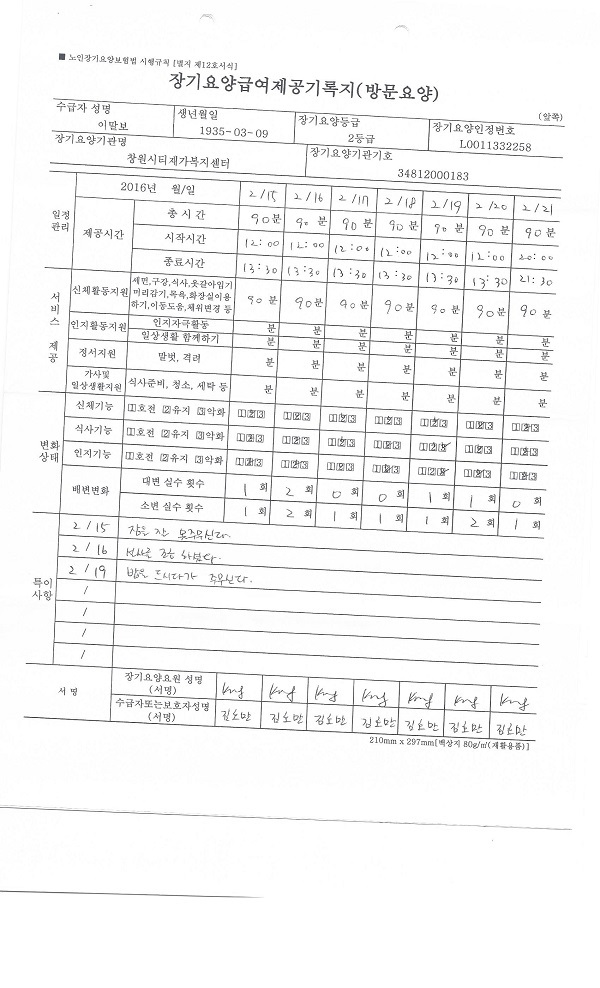 ■ 노인장기요양보험법 시행규칙 [별지 제12호서식]
장기요양급여제공기록지(방문요양)
(앞쪽)
수급자 성명 생년월일 장기요양등급 장기요양인정번호
이말보 1935-03-09 2등급 L0011332258
장기요양기관명 장기요양기관기호
창원시티재가복지센터 34812000183
2016년 월/일 2/15 2/16 2/17 2/18 2/19 2/20 2/21
일정관리 제공시간 총 시 간 90분 90분 90분 90분 90분 90분 90분
시작시간 12:00 12:00 12:00 12:00 12:00 12:00 20:00
종료시간 13:30 13:30 13:30 13:30 13:30 13:30 21:30
서비스 제공
신체활동지원 세면,구강,식사,옷갈아입기
머리감기,목욕,화장실이용
하기,이동도움,체위변경 등 90분 90분 90분 90분 90분 90분 90분
인지활동지원 인지자극활동 분 분 분 분 분 분 분
일상생활 함께하기 분 분 분 분 분 분 분
정서지원 말벗, 격려 분 분 분 분 분 분 분
가사및
일상생활지원 식사준비, 청소, 세탁 등 분 분 분 분 분 분 분
변화상태
신체기능 ①호전 ②유지 ③악화 ①②③ ①②③ ①②③ ①②③ ①②③ ①②③ ①②③
식사기능 ①호전 ②유지 ③악화 ①②③ ①②③ ①②③ ①②③ ①②③ ①②③ ①②③
인지기능 ①호전 ②유지 ③악화 ①②③ ①②③ ①②③ ①②③ ①②③ ①②③ ①②③
배변변화 대변 실수 횟수 1회 2회 0회 0회 1회 1회 0회
소변 실수 횟수 1회 2회 1회 1회 1회 2회 1회
특이사항
2/15 잠을 잘 못주무신다.
2/16
2/19 밥을 드시다가 주무신다.
/
/
/
/
서 명 장기요양요원 성명
(서명)
수급자또는보호자성명
(서명) 김호만 김호만 김호만 김호만 김호만 김호만 김호만
210mm x 297mm[백상지 80g/㎡(재활용품)]